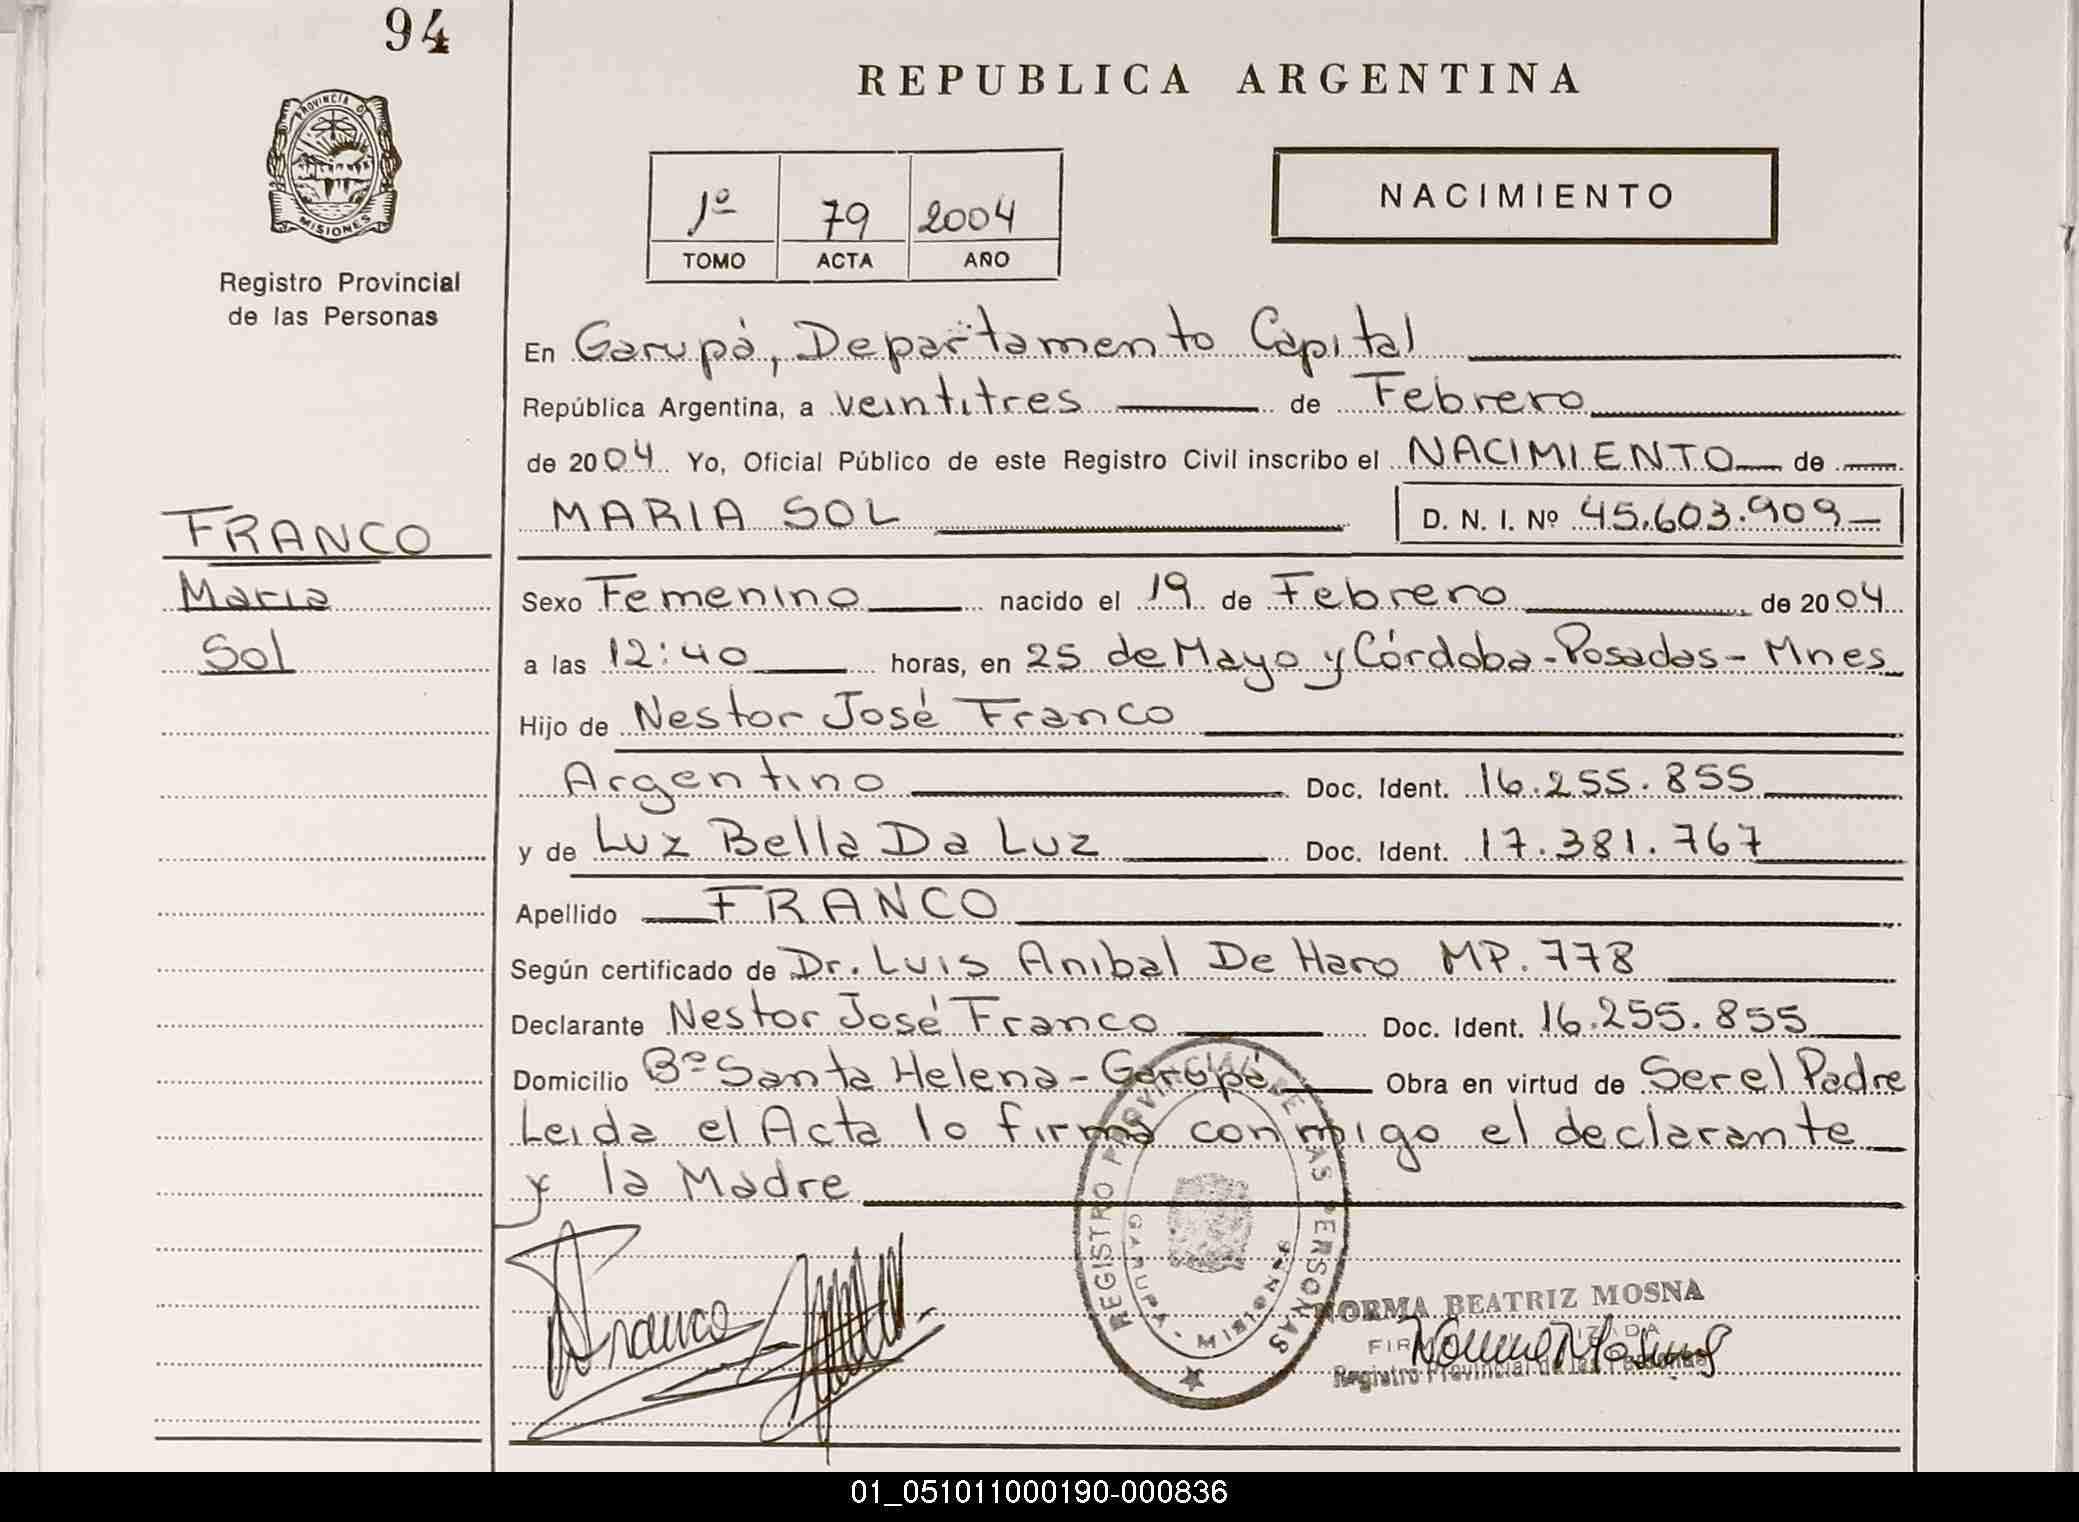 94
REPUBLICA ARGENTINA
PROVINCIA DE
MISIONES
Registro Provincial
de las Personas
1º 79 2004
TOMO ACTA AÑO
NACIMIENTO
En Garupá, Departamento Capital
República Argentina, a veintitres de Febrero
de 2004 Yo, Oficial Público de este Registro Civil inscribo el NACIMIENTO de
MARIA SOL D. N. I. Nº 45.603.909
FRANCO
Maria
Sol
Sexo Femenino nacido el 19 de Febrero de 2004
a las 12:40 horas, en 25 de Mayo y Córdoba - Posadas - Mnes
Hijo de Nestor José Franco
Argentino Doc. Ident. 16.255.855
y de Luz Bella Da Luz Doc. Ident. 17.381.767
Apellido FRANCO
Según certificado de Dr. Luis Anibal De Haro MP. 778
Declarante Nestor José Franco Doc. Ident. 16.255.855
Domicilio Bº Santa Helena - Garupá Obra en virtud de Ser el Padre
Leida el Acta lo firma conmigo el declarante
y la Madre
Franco
REGISTRO PROVINCIAL DE LAS PERSONAS
GARUPA - MISIONES
NORMA BEATRIZ MOSNA
Registro Provincial de las Personas
01_051011000190-000836